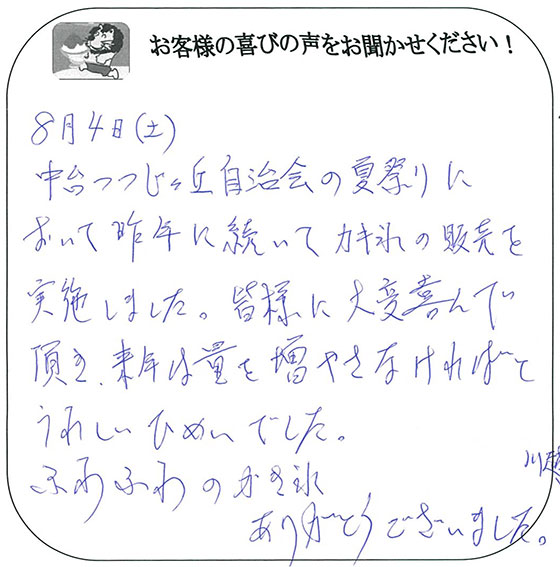 お客様の喜びの声をお聞かせください！
8月4日(土)
中台つつじヶ丘自治会の夏祭りに
おいて昨年に続いてカキ氷の販売を
実施しました。皆様に大変喜んで
頂き、来年は量を増やさなければと
うれしいひめいでした。
ふわふわのかき氷
ありがとうございました。
川越